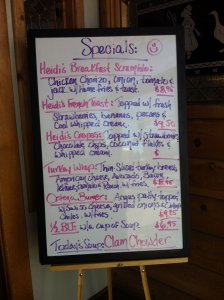 Specials:
Heidi's Breakfast Scramble:
Chicken Chorizo, onion, tomato &
jack w/ home fries & toast. $8.95
Heidi's French Toast: Topped w/ fresh
Strawberries, bananas, pecans &
Cool whipped cream. $9.50
Heidi's Crepes: Topped w/ Strawberries
Chocolate chips, coconut flakes &
whipped cream. $
Turkey Wrap: Thin Sliced turkey breast,
American cheese, Avocado, Bacon,
lettuce, tomato & w/ fries. $8.95
Ortega Burger: Angus patty topped
w/ Swiss cheese, grilled onions &
Chiles w/ fries. $9.25
1/2 BLT: w/ a cup of Soup. $6.95
Today's Soup: Clam Chowder